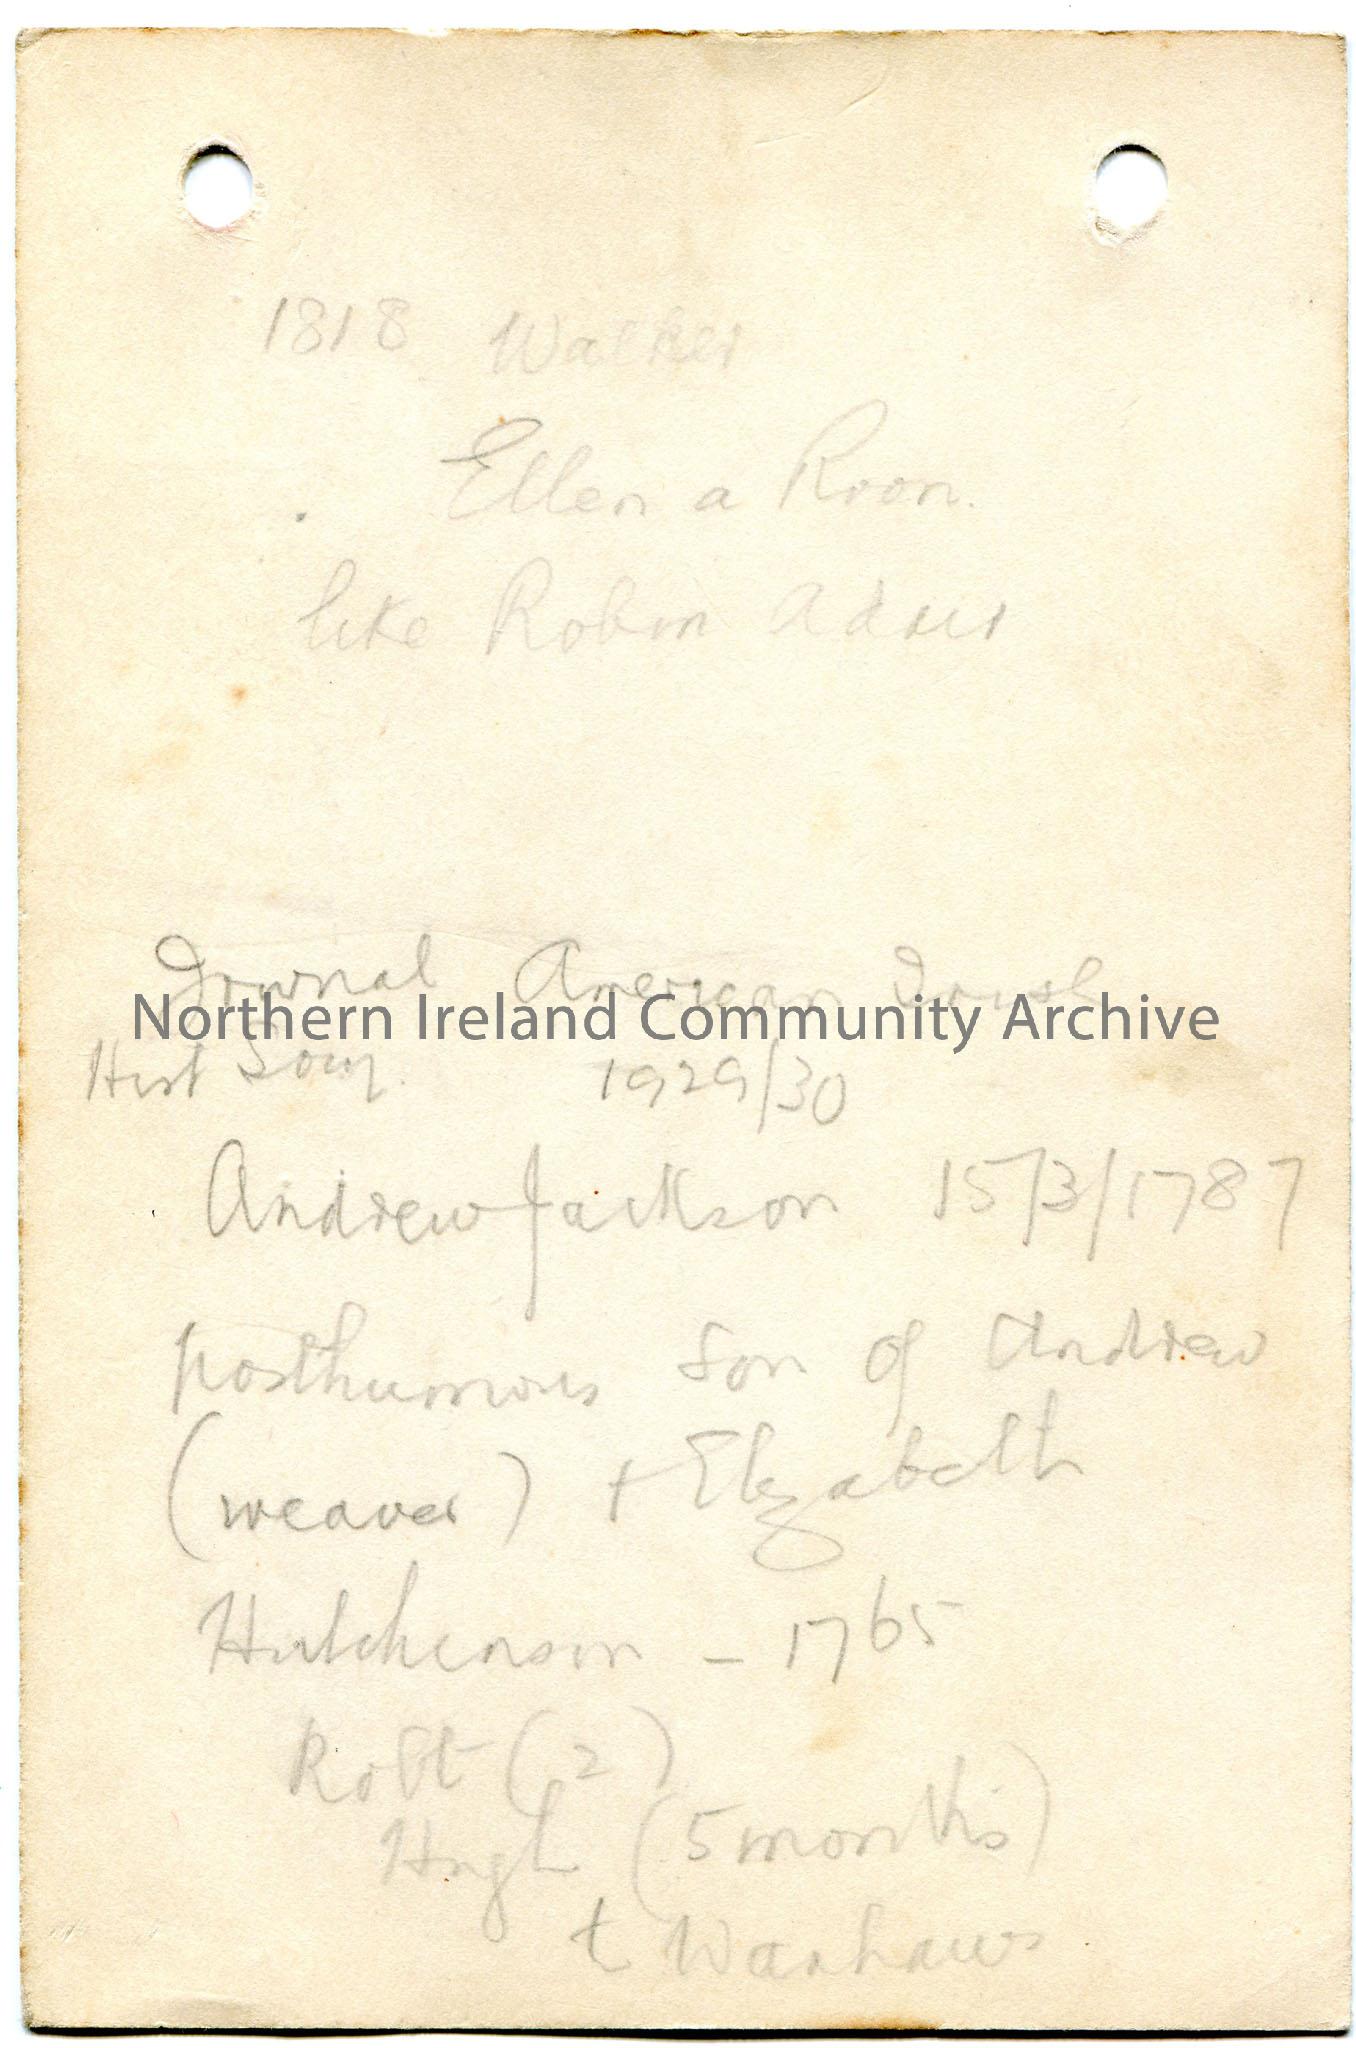 1818 Walker
Ellen a Roon.
like Robin Adair
Journal American Irish
Northern Ireland Community Archive
Hist Socy. 1929/30
Andrew Jackson 15/3/1787
posthumous son of Andrew
(weaver) + Elizabeth
Hutchenson - 1765
Robt (2)
Hugh (5 months)
t Waxhaws